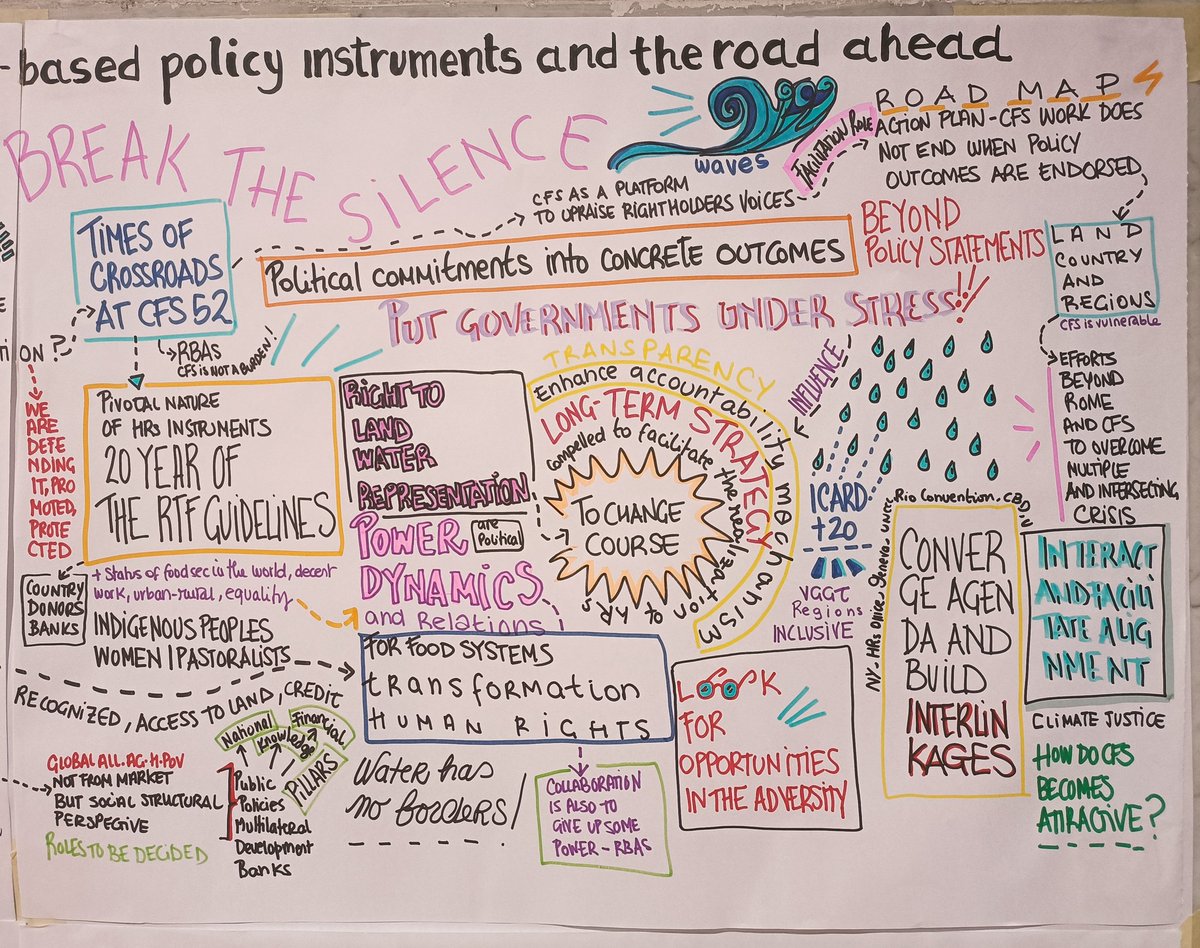 -based policy instruments and the road ahead
BREAK THE SILENCE
waves
FACILITATION ROLE
ROAD MAP
ACTION PLAN-CFS WORK DOES
NOT END WHEN POLICY
OUTCOMES ARE ENDORSED
CFS AS A PLATFORM
TO UPRAISE RIGHTHOLDERS VOICES
TIMES OF
CROSSROADS
AT CFS 52
Political commitments into CONCRETE OUTCOMES
BEYOND
POLICY STATEMENTS
LAND
COUNTRY
AND
REGIONS
CFS is vulnerable
PUT GOVERNMENTS UNDER STRESS!!
ON?
RBAS
CFS IS NOT A BURDEN!
WE
ARE
DEFE
NDING
IT, PRO
MOTED,
PROTE
CTED
PIVOTAL NATURE
OF HRs INSTRUMENTS
20 YEAR OF
THE RTF GUIDELINES
RIGHT TO
LAND
WATER
REPRESENTATION
POWER
are
Political
DYNAMICS
and Relations
TRANSPARENCY
Enhance accountability mechanism
LONG-TERM STRATEGY
compelled to facilitate the realization of HRs
TO CHANGE
COURSE
INFLUENCE
ICARD
+20
VGGT
Regions
INCLUSIVE
EFFORTS
BEYOND
ROME
AND CFS
TO OVERCOME
MULTIPLE
AND INTERSECTING
CRISIS
NY-HRs Office, Geneva-UNCCC
Rio Convention, CBD
CONVER
GE AGEN
DA AND
BUILD
INTERLIN
KAGES
INTERACT
AND FACILI
TATE ALIG
NMENT
CLIMATE JUSTICE
HOW DO CFS
BECOMES
ATTRACTIVE?
COUNTRY
DONORS
BANKS
+ Status of food sec in the world, decent
work, urban-rural, equality
INDIGENOUS PEOPLES
WOMEN | PASTORALISTS
RECOGNIZED, ACCESS TO LAND, CREDIT
FOR FOOD SYSTEMS
transformation
HUMAN RIGHTS
GLOBAL ALL. AG. H. POV
NOT FROM MARKET
BUT SOCIAL STRUCTURAL
PERSPECTIVE
ROLES TO BE DECIDED
National
Knowledge
Financial
PILLARS
Public
Policies
Multilateral
Development
Banks
Water has
no borders/
COLLABORATION
IS ALSO TO
GIVE UP SOME
POWER-RBAS
LOOK
FOR
OPPORTUNITIES
IN THE ADVERSITY